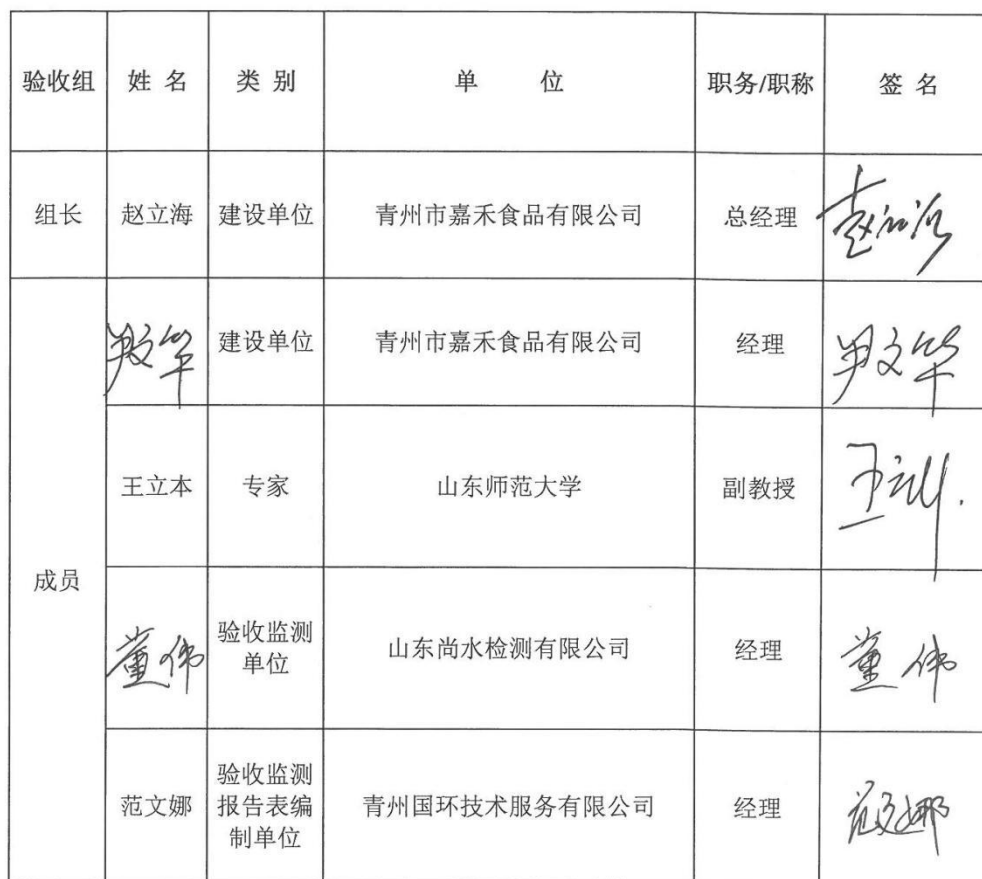 验收组 姓 名 类 别 单 位 职务/职称 签 名
组长 赵立海 建设单位 青州市嘉禾食品有限公司 总经理 赵立海
尹文华 建设单位 青州市嘉禾食品有限公司 经理 尹文华
王立本 专家 山东师范大学 副教授 王立本
成员
董伟 验收监测
单位 山东尚水检测有限公司 经理 董伟
范文娜 验收监测
报告表编
制单位 青州国环技术服务有限公司 经理 范文娜